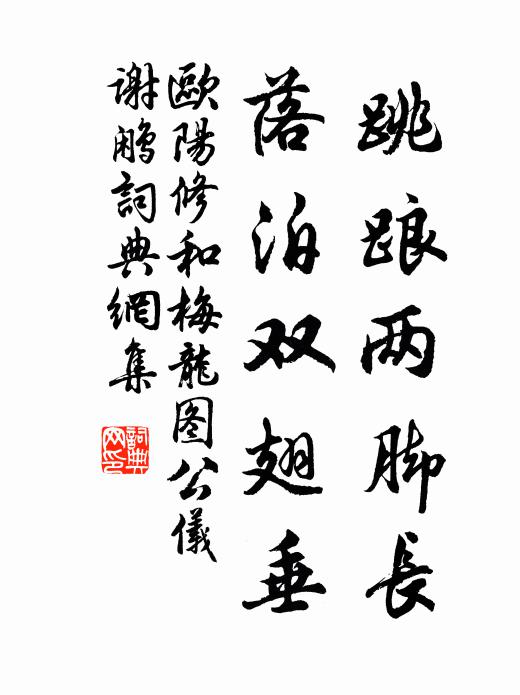 跳踉两脚長
落泊双翅垂
歐陽修和梅龍图公儀
谢鹇詞典網集
詞典网印